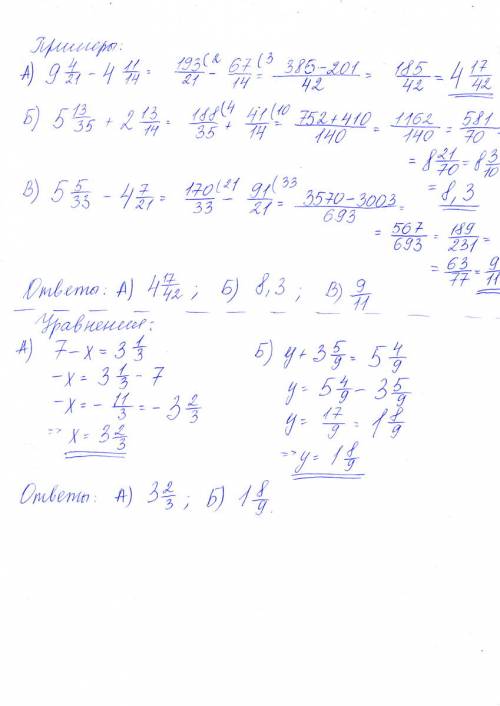 Примеры:
А) 9 4/21 - 4 11/14 = 193(2/21 - 67(3/14 = 385-201/42 = 185/42 = 4 17/42
Б) 5 13/35 + 2 13/14 = 188(4/35 + 41(10/14 = 752+410/140 = 1162/140 = 581/70
= 8 21/70 = 8 3/10
= 8,3
В) 5 5/33 - 4 7/21 = 170(21/33 - 91(33/21 = 3570-3003/693 =
= 567/693 = 189/231 =
= 63/77 = 9/11
Ответы: А) 4 17/42; Б) 8,3; В) 9/11
Уравнения:
А) 7-x = 3 1/3
-x = 3 1/3 - 7
-x = - 11/3 = -3 2/3
=> x = 3 2/3
Б) y + 3 5/9 = 5 4/9
y = 5 4/9 - 3 5/9
y = 17/9 = 1 8/9
=> y = 1 8/9
Ответы: А) 3 2/3; Б) 1 8/9.